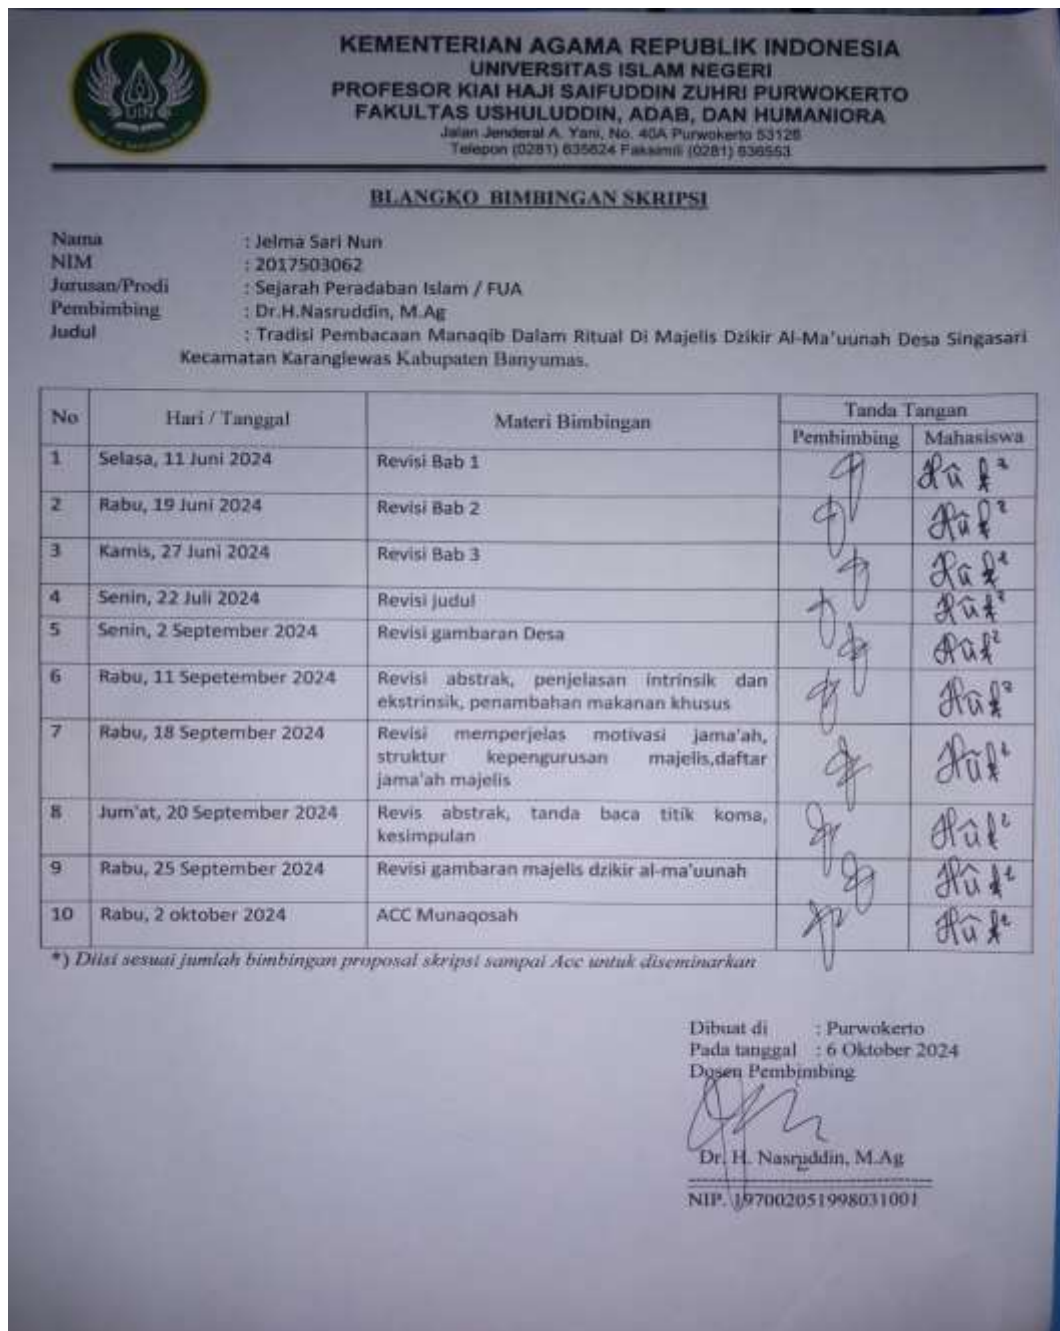 KEMENTERIAN AGAMA REPUBLIK INDONESIA
UNIVERSITAS ISLAM NEGERI
PROFESOR KIAI HAJI SAIFUDDIN ZUHRI PURWOKERTO
FAKULTAS USHULUDDIN, ADAB, DAN HUMANIORA
Jalan Jenderal A. Yani, No. 40A Purwokerto 53126
Telepon (0281) 635624 Faksimili (0281) 636553
UIN
BLANGKO BIMBINGAN SKRIPSI
Nama : Jelma Sari Nun
NIM : 2017503062
Jurusan/Prodi : Sejarah Peradaban Islam / FUA
Pembimbing : Dr.H.Nasruddin, M.Ag
Judul : Tradisi Pembacaan Manaqib Dalam Ritual Di Majelis Dzikir Al-Ma'uunah Desa Singasari
Kecamatan Karanglewas Kabupaten Banyumas.
No Hari / Tanggal Materi Bimbingan Tanda Tangan
Pembimbing Mahasiswa
1 Selasa, 11 Juni 2024 Revisi Bab 1
2 Rabu, 19 Juni 2024 Revisi Bab 2
3 Kamis, 27 Juni 2024 Revisi Bab 3
4 Senin, 22 Juli 2024 Revisi judul
5 Senin, 2 September 2024 Revisi gambaran Desa
6 Rabu, 11 Sepetember 2024 Revisi abstrak, penjelasan intrinsik dan
ekstrinsik, penambahan makanan khusus
7 Rabu, 18 September 2024 Revisi memperjelas motivasi jama'ah,
struktur kepengurusan majelis,daftar
jama'ah majelis
8 Jum'at, 20 September 2024 Revis abstrak, tanda baca titik koma,
kesimpulan
9 Rabu, 25 September 2024 Revisi gambaran majelis dzikir al-ma'uunah
10 Rabu, 2 oktober 2024 ACC Munaqosah
*) Diisi sesuai jumlah bimbingan proposal skripsi sampai Acc untuk diseminarkan
Dibuat di : Purwokerto
Pada tanggal : 6 Oktober 2024
Dosen Pembimbing
Dr. H. Nasruddin, M.Ag
NIP. 197002051998031001